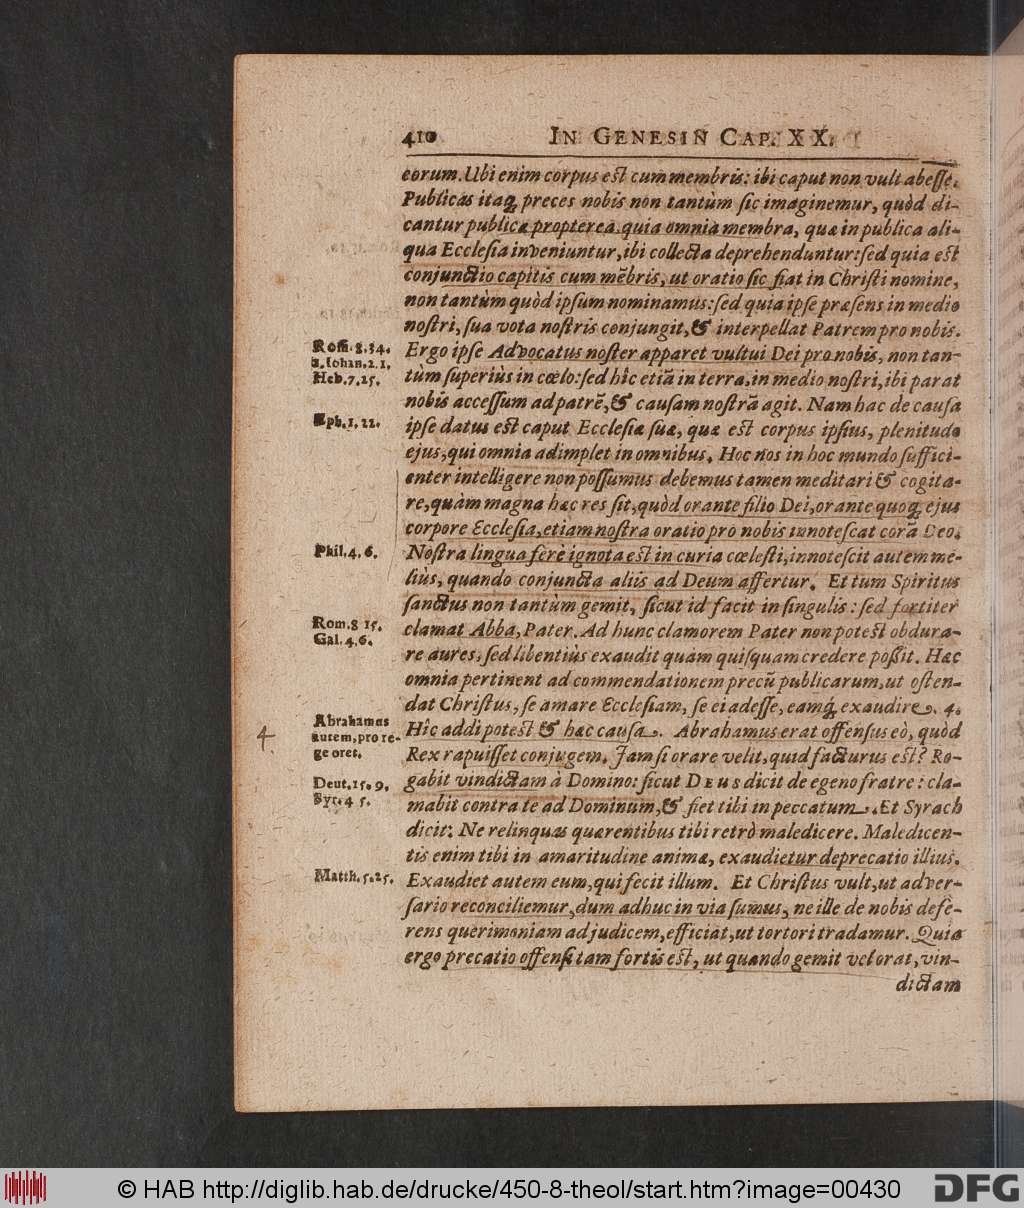 410 IN GENESIN CAP. XX.
eorum. Ubi enim corpus est cum membris: ibi caput non vult abesse.
Publicas itaq; preces nobis non tantùm sic imaginemur, quòd di-
cantur publicæ propterea, quia omnia membra, quæ in publica ali-
qua Ecclesia inveniuntur, ibi collecta deprehenduntur: sed quia est
conjunctio capitis cum mẽbris, ut oratio sic fiat in Christi nomine,
non tantùm quòd ipsum nominamus: sed quia ipse præsens in medio
nostri, sua vota nostris conjungit, & interpellat Patrem pro nobis.
Rom. 8. 34.
1. Iohan. 2. 1.
Heb. 7. 25.
Ergo ipse Advocatus noster apparet vultui Dei pro nobis, non tan-
tùm superiùs in cœlo: sed hîc etiã in terra, in medio nostri, ibi parat
nobis accessum ad patrẽ, & causam nostrã agit. Nam hac de causa
Eph. 1. 22.
ipse datus est caput Ecclesiæ suæ, quæ est corpus ipsius, plenitudo
ejus, qui omnia adimplet in omnibus. Hoc nos in hoc mundo suffici-
enter intelligere non possumus debemus tamen meditari & cogita-
re, quàm magna hæc res sit, quòd orante filio Dei, orante quoq; ejus
corpore Ecclesia, etiam nostra oratio pro nobis innotescat corã Deo.
Phil. 4. 6.
Nostra lingua ferè ignota est in curia cœlesti, innotescit autem me-
liùs, quando conjuncta aliis ad Deum affertur. Et tum Spiritus
sanctus non tantùm gemit, sicut id facit in singulis: sed fortiter
Rom. 8 15.
Gal. 4. 6.
clamat Abba, Pater. Ad hunc clamorem Pater non potest obdura-
re aures, sed libentiùs exaudit quàm quisquam credere possit. Hæc
omnia pertinent ad commendationem precũ publicarum, ut osten-
dat Christus, se amare Ecclesiam, se ei adesse, eamq́; exaudire. 4.
4.
Abrahamus
autem, pro re-
ge oret.
Hîc addi potest & hæc causa. Abrahamus erat offensus eò, quòd
Rex rapuisset conjugem. Jam si orare velit, quid facturus est? Ro-
Deut. 15. 9.
Syr. 4 5.
gabit vindictam à Domino: sicut DEUS dicit de egeno fratre: cla-
mabit contra te ad Dominum, & fiet tibi in peccatum. Et Syrach
dicit: Ne relinquas quærentibus tibi retrò maledicere. Maledicen-
tis enim tibi in amaritudine animæ, exaudietur deprecatio illius.
Matth. 5. 25.
Exaudiet autem eum, qui fecit illum. Et Christus vult, ut adver-
sario reconciliemur, dum adhuc in via sumus, ne ille de nobis defe-
rens querimoniam ad judicem, efficiat, ut tortori tradamur. Quia
ergo precatio offensi tam fortis est, ut quando gemit vel orat, vin-
dictam
© HAB http://diglib.hab.de/drucke/450-8-theol/start.htm?image=00430
DFG